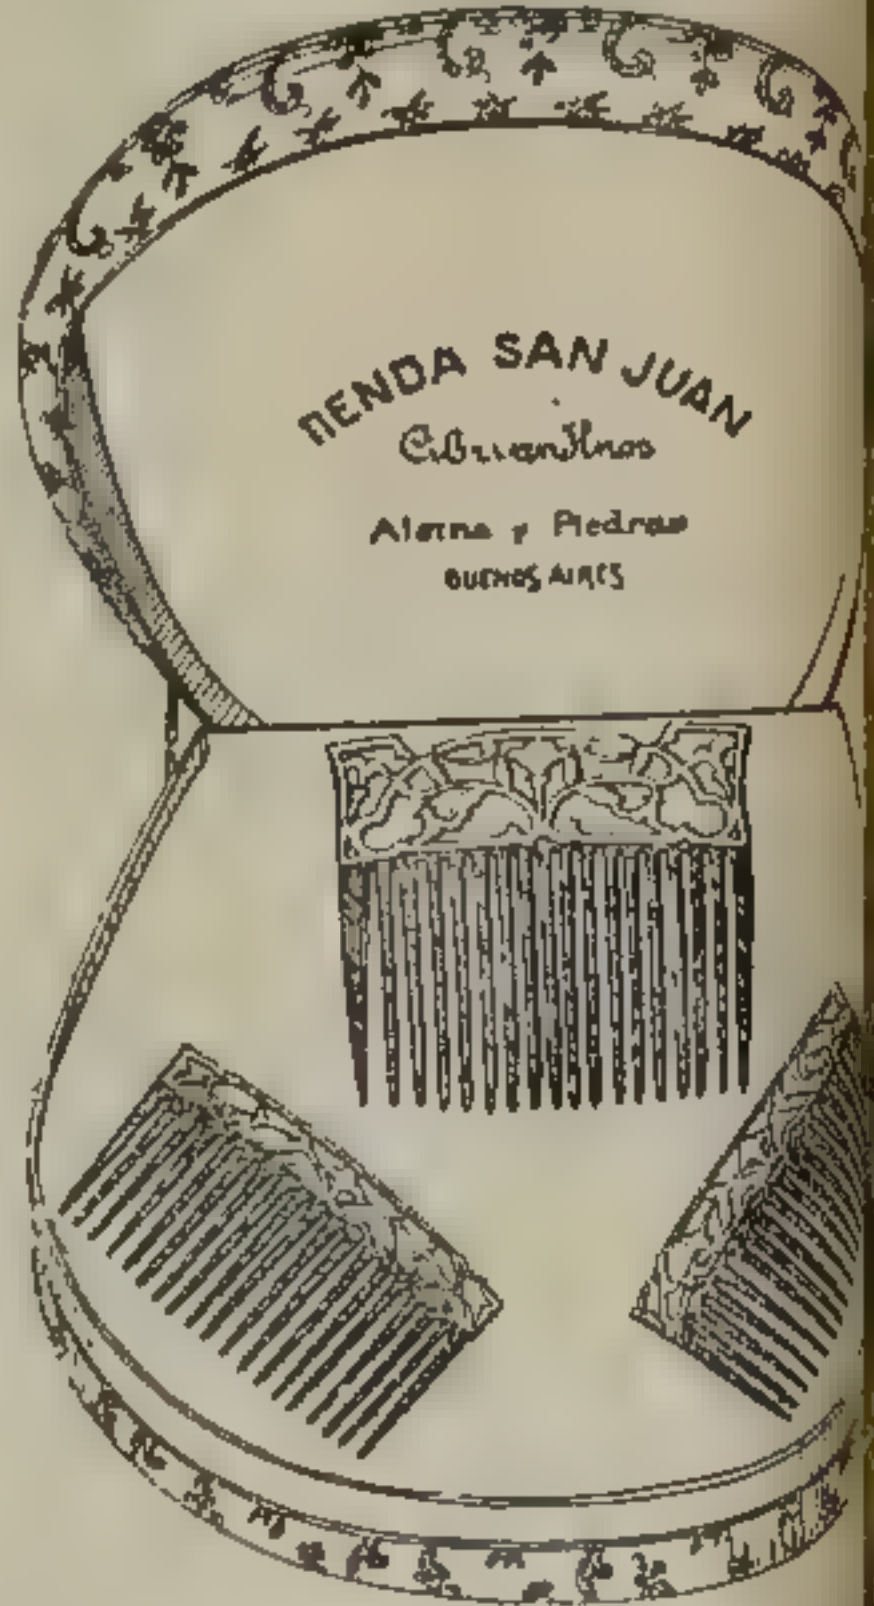 TIENDA SAN JUAN
Cibrian Hnos
Alsina y Piedras
BUENOS AIRES